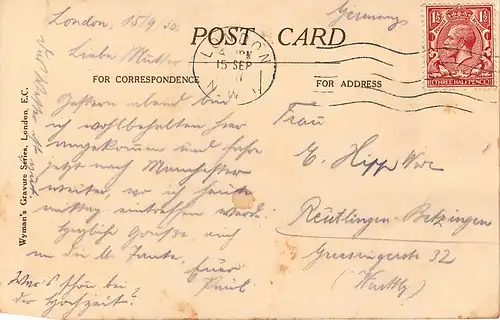 London, 15/9/30.
Germany
POST CARD
LONDON
15 SEP
N.W.
1½ THREE HALFPENCE 1½
FOR CORRESPONDENCE
FOR ADDRESS
Wyman's Gravure Series, London, E.C.
Liebe Mutter
Gestern abend bin
ich wohlbehalten hier
angekommen und fahre
jetzt nach Manchester
weiter, wo ich heute
mittag eintreffen werde.
Herzliche Grüsse auch
an die Tante.
Euer
Paul.
War's schön bei
der Hochzeit?
Das Wetter ist
Frau
E. Hipp Wwe
Reutlingen-Betzingen
32
(Wurttbg)